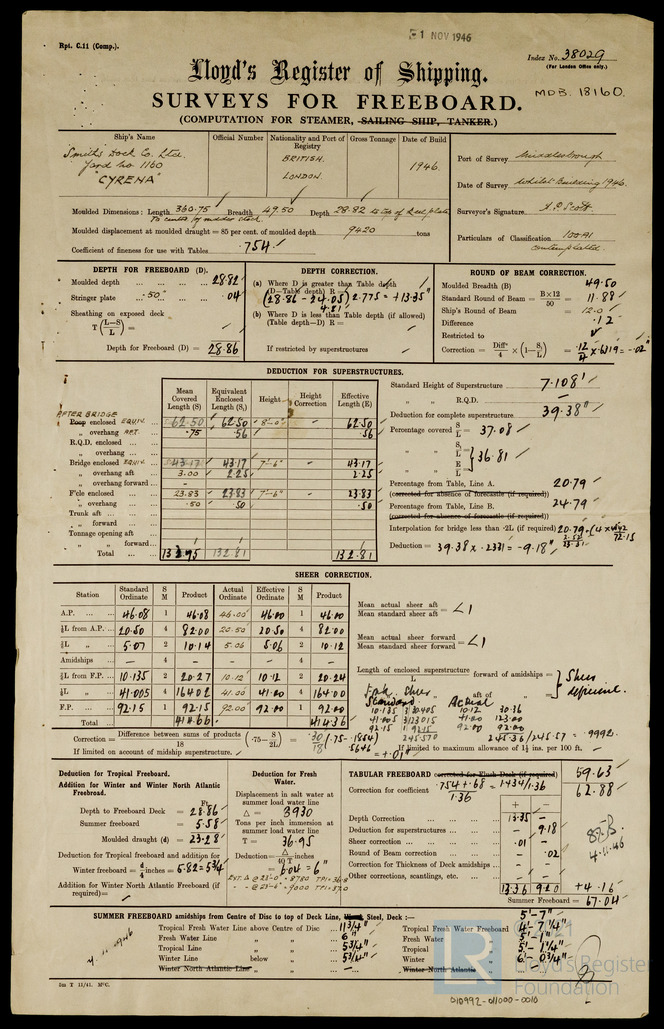 1 NOV 1946
Rpt. C.11 (Comp.).
Index No. 38029
(For London Office only.)
Lloyd's Register of Shipping.
MDB. 18160.
SURVEYS FOR FREEBOARD.
(COMPUTATION FOR STEAMER, SAILING SHIP, TANKER.)
Ship's Name Official Number Nationality and Port of Registry Gross Tonnage Date of Build
Smiths Dock Co. Ltd.
Yard No 1160
"CYRENA"
BRITISH.
LONDON
1946.
Port of Survey Middlesbrough
Date of Survey Whilst Building 1946.
Surveyor's Signature A.P. Scott.
Particulars of Classification 100A1
contemplated
Moulded Dimensions: Length 360.75 Breadth 49.50 Depth 28.82 to top of keel plate
To centre of rudder stock.
Moulded displacement at moulded draught = 85 per cent. of moulded depth 9420 tons
Coefficient of fineness for use with Tables .754
DEPTH FOR FREEBOARD (D).
Moulded depth ... 28.82
Stringer plate .50" .04
Sheathing on exposed deck
T (L-S/L) =
Depth for Freeboard (D) = 28.86
DEPTH CORRECTION.
(a) Where D is greater than Table depth
(D—Table depth) R =
(28.86 - 24.05) 2.775 = +13.35"
4.81
(b) Where D is less than Table depth (if allowed)
(Table depth—D) R =
If restricted by superstructures
ROUND OF BEAM CORRECTION.
Moulded Breadth (B) 49.50
Standard Round of Beam = B×12/50 = 11.88
Ship's Round of Beam = 12.0
Difference .12
Restricted to
Correction = Diff/4 × (1-S₁/L) = .12/4 × .6319 = -.02"
DEDUCTION FOR SUPERSTRUCTURES.
Mean Covered Length (S) Equivalent Enclosed Length (S₁) Height Height Correction Effective Length (E)
AFTER BRIDGE
Poop enclosed EQUIV. 62.50 62.50 8'-0" 62.50
" overhang AFT. .75 .56 .56
R.Q.D. enclosed
" overhang
Bridge enclosed EQUIV. 43.17 43.17 7'-6" - 43.17
" overhang aft 3.00 2.25 2.25
" overhang forward -
F'cle enclosed 23.83 23.83 7'-6" - 23.83
" overhang .50 .50 .50
Trunk aft
" forward
Tonnage opening aft
" " forward
Total 132.81 132.81
Standard Height of Superstructure 7.108'
" " R.Q.D. —
Deduction for complete superstructure 39.38"
Percentage covered S/L = 37.08
" " S₁/L
" " E/L } = 36.81
Percentage from Table, Line A. 20.79
(corrected for absence of forecastle (if required))
Percentage from Table, Line B. 24.79
(corrected for absence of forecastle (if required))
Interpolation for bridge less than ·2L (if required)
Deduction = 39.38 × .2331 = -9.18"
SHEER CORRECTION.
Station Standard Ordinate S M Product Actual Ordinate Effective Ordinate S M Product
A.P. 46.08 1 46.08 46.00 46.00 1 46.00
⅙L from A.P. 20.50 4 82.00 20.50 20.50 4 82.00
⅓L " 5.07 2 10.14 5.06 5.06 2 10.12
Amidships - 4 - - - 4 -
⅓L from F.P. 10.135 2 20.27 10.12 10.12 2 20.24
⅙L " 41.005 4 164.02 41.00 41.00 4 164.00
F.P. 92.15 1 92.15 92.00 92.00 1 92.00
Total 414.66 414.36
Mean actual sheer aft / Mean standard sheer aft = <1
Mean actual sheer forward / Mean standard sheer forward = <1
Length of enclosed superstructure forward of amidships =
L
" " aft of " =
Sheer deficient.
Fwd. Sheer
Standard Actual
10.135 3 30.405 10.12 30.36
41.005 3 123.015 41.00 123.00
92.15 1 92.15 92.00 92.00
245.570 245.36 / 245.57 = .9992
Correction = Difference between sums of products / 18 (·75 — S/2L) = .30/18 (.75 - .1854) .5646
= +.01"
If limited on account of midship superstructure.
If limited to maximum allowance of 1½ ins. per 100 ft.
Deduction for Tropical Freeboard.
Addition for Winter and Winter North Atlantic Freeboard.
Ft.
Depth to Freeboard Deck = 28.86
Summer freeboard = 5.58
Moulded draught (d) = 23.28
Deduction for Tropical freeboard and addition for
Winter freeboard = d/4 inches = 5.82 = 5¾
Addition for Winter North Atlantic Freeboard (if required) =
Deduction for Fresh Water.
Displacement in salt water at summer load water line
Δ = 8930
Tons per inch immersion at summer load water line
T = 36.95
Deduction = Δ/40T inches
= 6.04 = 6"
TABULAR FREEBOARD corrected for Flush Deck (if required) 59.63
Correction for coefficient .754 + .68 / 1.36 = 1.434/1.36 62.88
+ −
Depth Correction 13.35 -
Deduction for superstructures - 9.18
Sheer correction .01 -
Round of Beam correction - .02
Correction for Thickness of Deck amidships - -
Other corrections, scantlings, etc.
13.36 9.20 +4.16
Summer Freeboard = 67.04
4.11.46
SUMMER FREEBOARD amidships from Centre of Disc to top of Deck Line, Wood, Steel, Deck :— 5'-7"
Tropical Fresh Water Line above Centre of Disc 11¾"
Fresh Water Line " " 6"
Tropical Line " " 5¾"
Winter Line below " 5¾"
Winter North Atlantic Line " "
Tropical Fresh Water Freeboard 4'-7¼"
Fresh Water " 5'-1"
Tropical " 5'-1¼"
Winter " 6'-0¾"
Winter North Atlantic "
LR
Lloyd's Register
Foundation
010992-011000-0010